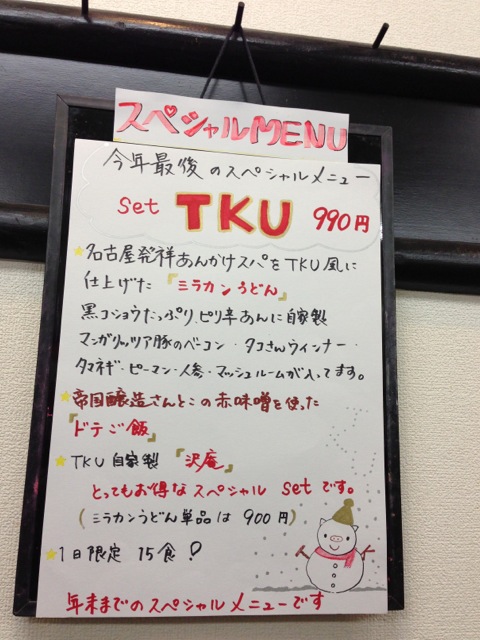 スペシャルMENU
今年最後のスペシャルメニュー
set TKU 990円
★名古屋発祥あんかけスパをTKU風に
仕上げた『ミラカンうどん』
黒コショウたっぷり、ピリ辛あんに自家製
マンガリッツァ豚のベーコン・タコさんウィンナー・
タマネギ・ピーマン・人参・マッシュルームが入ってます。
★帝国醸造さんとこの赤味噌を使った
『ドテご飯』
★TKU自家製『沢庵』
とってもお得なスペシャルsetです。
(ミラカンうどん単品は900円)
★1日限定15食!
年末までのスペシャルメニューです